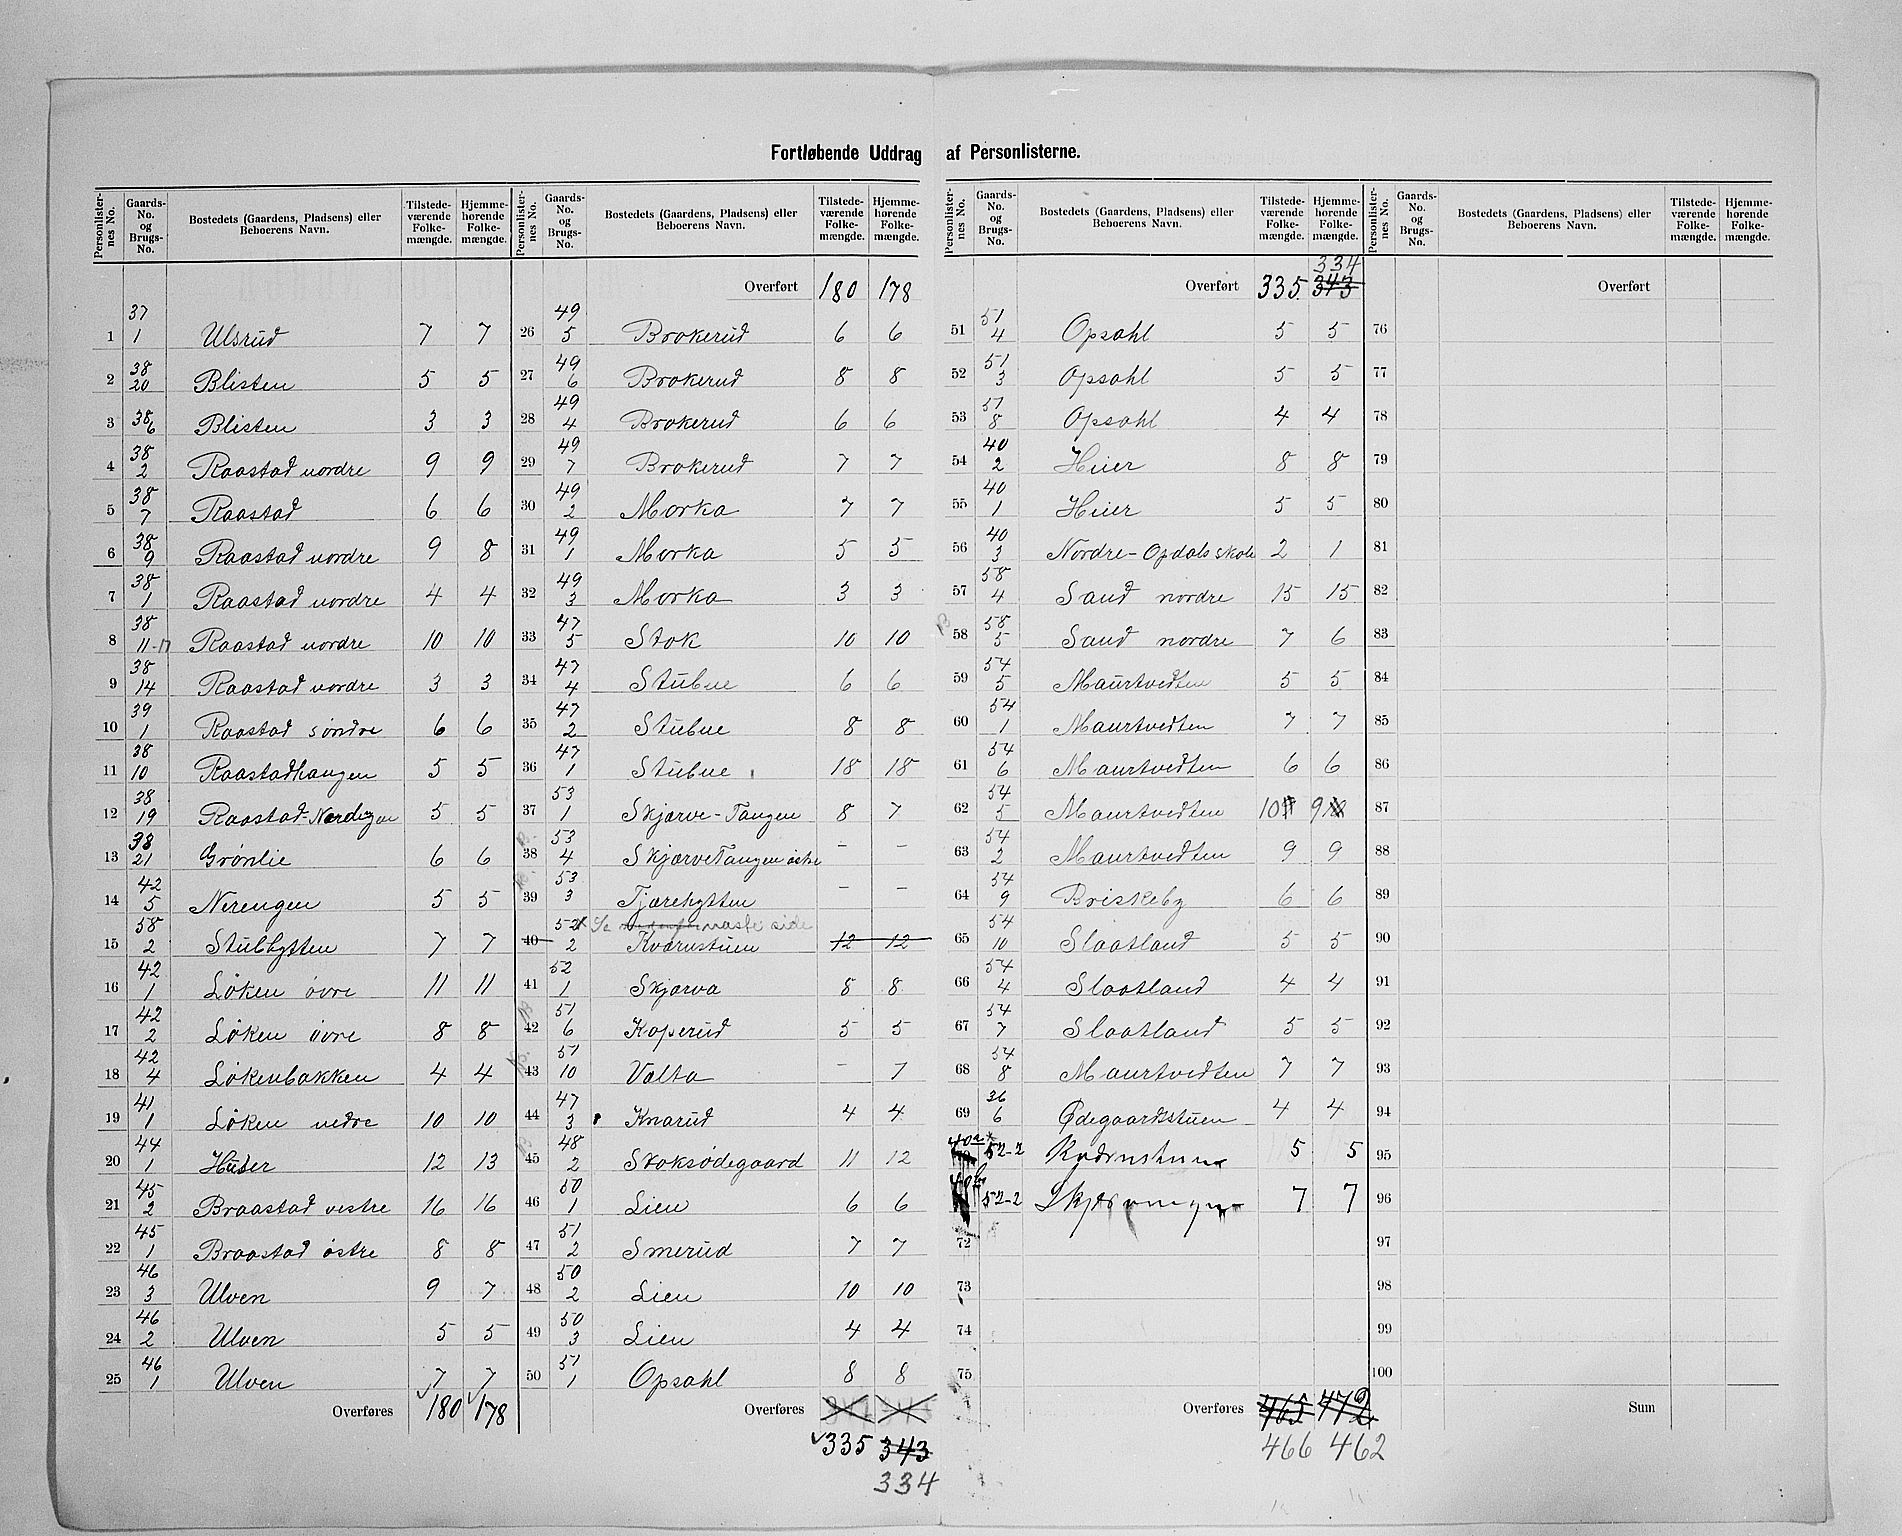 Fortløbende Uddrag af Personlisterne.
Personlister-nes No. | Gaards-No. og Brugs-No. | Bostedets (Gaardens, Pladsens) eller Beboerens Navn. | Tilstede-værende Folke-mængde. | Hjemme-hørende Folke-mængde.
1 37 1 Ulsrud 7 7
2 38 20 Blisten 5 5
3 38 6 Blisten 3 3
4 38 2 Raastad nordre 9 9
5 38 7 Raastad 6 6
6 38 9 Raastad nordre 9 8
7 38 1 Raastad nordre 4 4
8 38 11-17 Raastad nordre 10 10
9 38 14 Raastad nordre 3 3
10 39 1 Raastad søndre 6 6
11 38 10 Raastadhaugen 5 5
12 38 19 Raastad-Nordigen 5 5
13 38 21 Grønlie 6 6
14 42 5 Nerengen 5 5
15 58 2 Stubhytten 7 7
16 42 1 Løken øvre 11 11
17 42 2 Løken øvre 8 8
18 42 4 Løkenbakken 4 4
19 41 1 Løken nedre 10 10
20 44 1 Huser 12 13
21 45 2 Braastad vestre 16 16
22 45 1 Braastad østre 8 8
23 46 3 Ulven 9 7
24 46 2 Ulven 5 5
25 46 1 Ulven 7 7
Overføres 180 178
Personlister-nes No. | Gaards-No. og Brugs-No. | Bostedets (Gaardens, Pladsens) eller Beboerens Navn. | Tilstede-værende Folke-mængde. | Hjemme-hørende Folke-mængde.
Overført 180 178
26 49 5 Brokerud 6 6
27 49 6 Brokerud 8 8
28 49 4 Brokerud 6 6
29 49 7 Brokerud 7 7
30 49 2 Morka 7 7
31 49 1 Morka 5 5
32 49 3 Morka 3 3
33 47 5 Stok 10 10
34 47 4 Stubue 6 6
35 47 2 Stubue 8 8
36 47 1 Stubue 18 18
37 53 1 Skjærve-Tangen 8 7
38 53 4 SkjærveTangen østre - -
39 53 3 Tjærehytten - -
Se næste side
40 52 2 Kværnstuen 12 12
41 52 1 Skjærva 8 8
42 51 6 Koperud 5 5
43 51 10 Valta - 7
44 47 3 Knarud 4 4
45 48 2 Stoksødegaard 11 12
46 50 1 Lien 6 6
47 51 2 Smerud 7 7
48 50 2 Lien 10 10
49 50 3 Lien 4 4
50 51 1 Opsahl 8 8
Overføres
335 343
334
Personlister-nes No. | Gaards-No. og Brugs-No. | Bostedets (Gaardens, Pladsens) eller Beboerens Navn. | Tilstede-værende Folke-mængde. | Hjemme-hørende Folke-mængde.
334
Overført 335 343
51 51 4 Opsahl 5 5
52 51 3 Opsahl 5 5
53 51 8 Opsahl 4 4
54 40 2 Heier 8 8
55 40 1 Heier 5 5
56 40 3 Nordre-Opdals skole 2 1
57 58 4 Sand nordre 15 15
58 58 5 Sand nordre 7 6
59 54 5 Maurtvedten 5 5
60 54 1 Maurtvedten 7 7
61 54 6 Maurtvedten 6 6
62 54 5 Maurtvedten 10 9
63 54 2 Maurtvedten 9 9
64 54 9 Briskeby 6 6
65 54 10 Slaatland 5 5
66 54 4 Slaatland 4 4
67 54 7 Slaatland 5 5
68 54 8 Maurtvedten 7 7
69 36 6 Ødegaardstuen 4 4
40a 52-2 Kværnstuen 5 5
40b 52-2 7 7
72
73
74
75
Overføres 465 472
466 462
Personlister-nes No. | Gaards-No. og Brugs-No. | Bostedets (Gaardens, Pladsens) eller Beboerens Navn. | Tilstede-værende Folke-mængde. | Hjemme-hørende Folke-mængde.
Overført
76
77
78
79
80
81
82
83
84
85
86
87
88
89
90
91
92
93
94
95
96
97
98
99
100
Sum